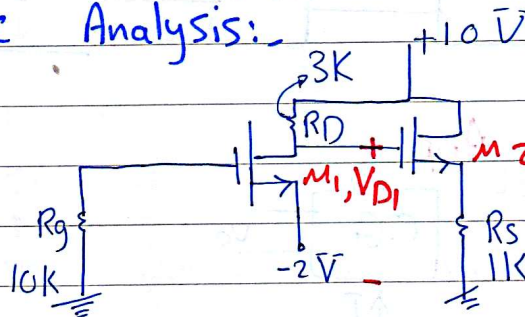 Analysis:-
+10 V
3K
RD
M1, VD1
M2
Rg
10K
-2V
Rs
11K